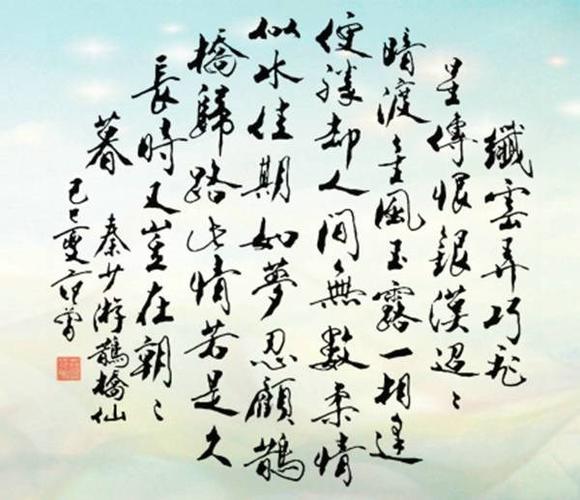 纖雲弄巧飛
星傳恨銀漢迢〻
暗渡金風玉露一相逢
便勝却人間無數柔情
似水佳期如夢忍顧鵲
橋歸路此情若是久
長時又豈在朝〻
暮
秦少游鵲橋仙
己巳夏范曾